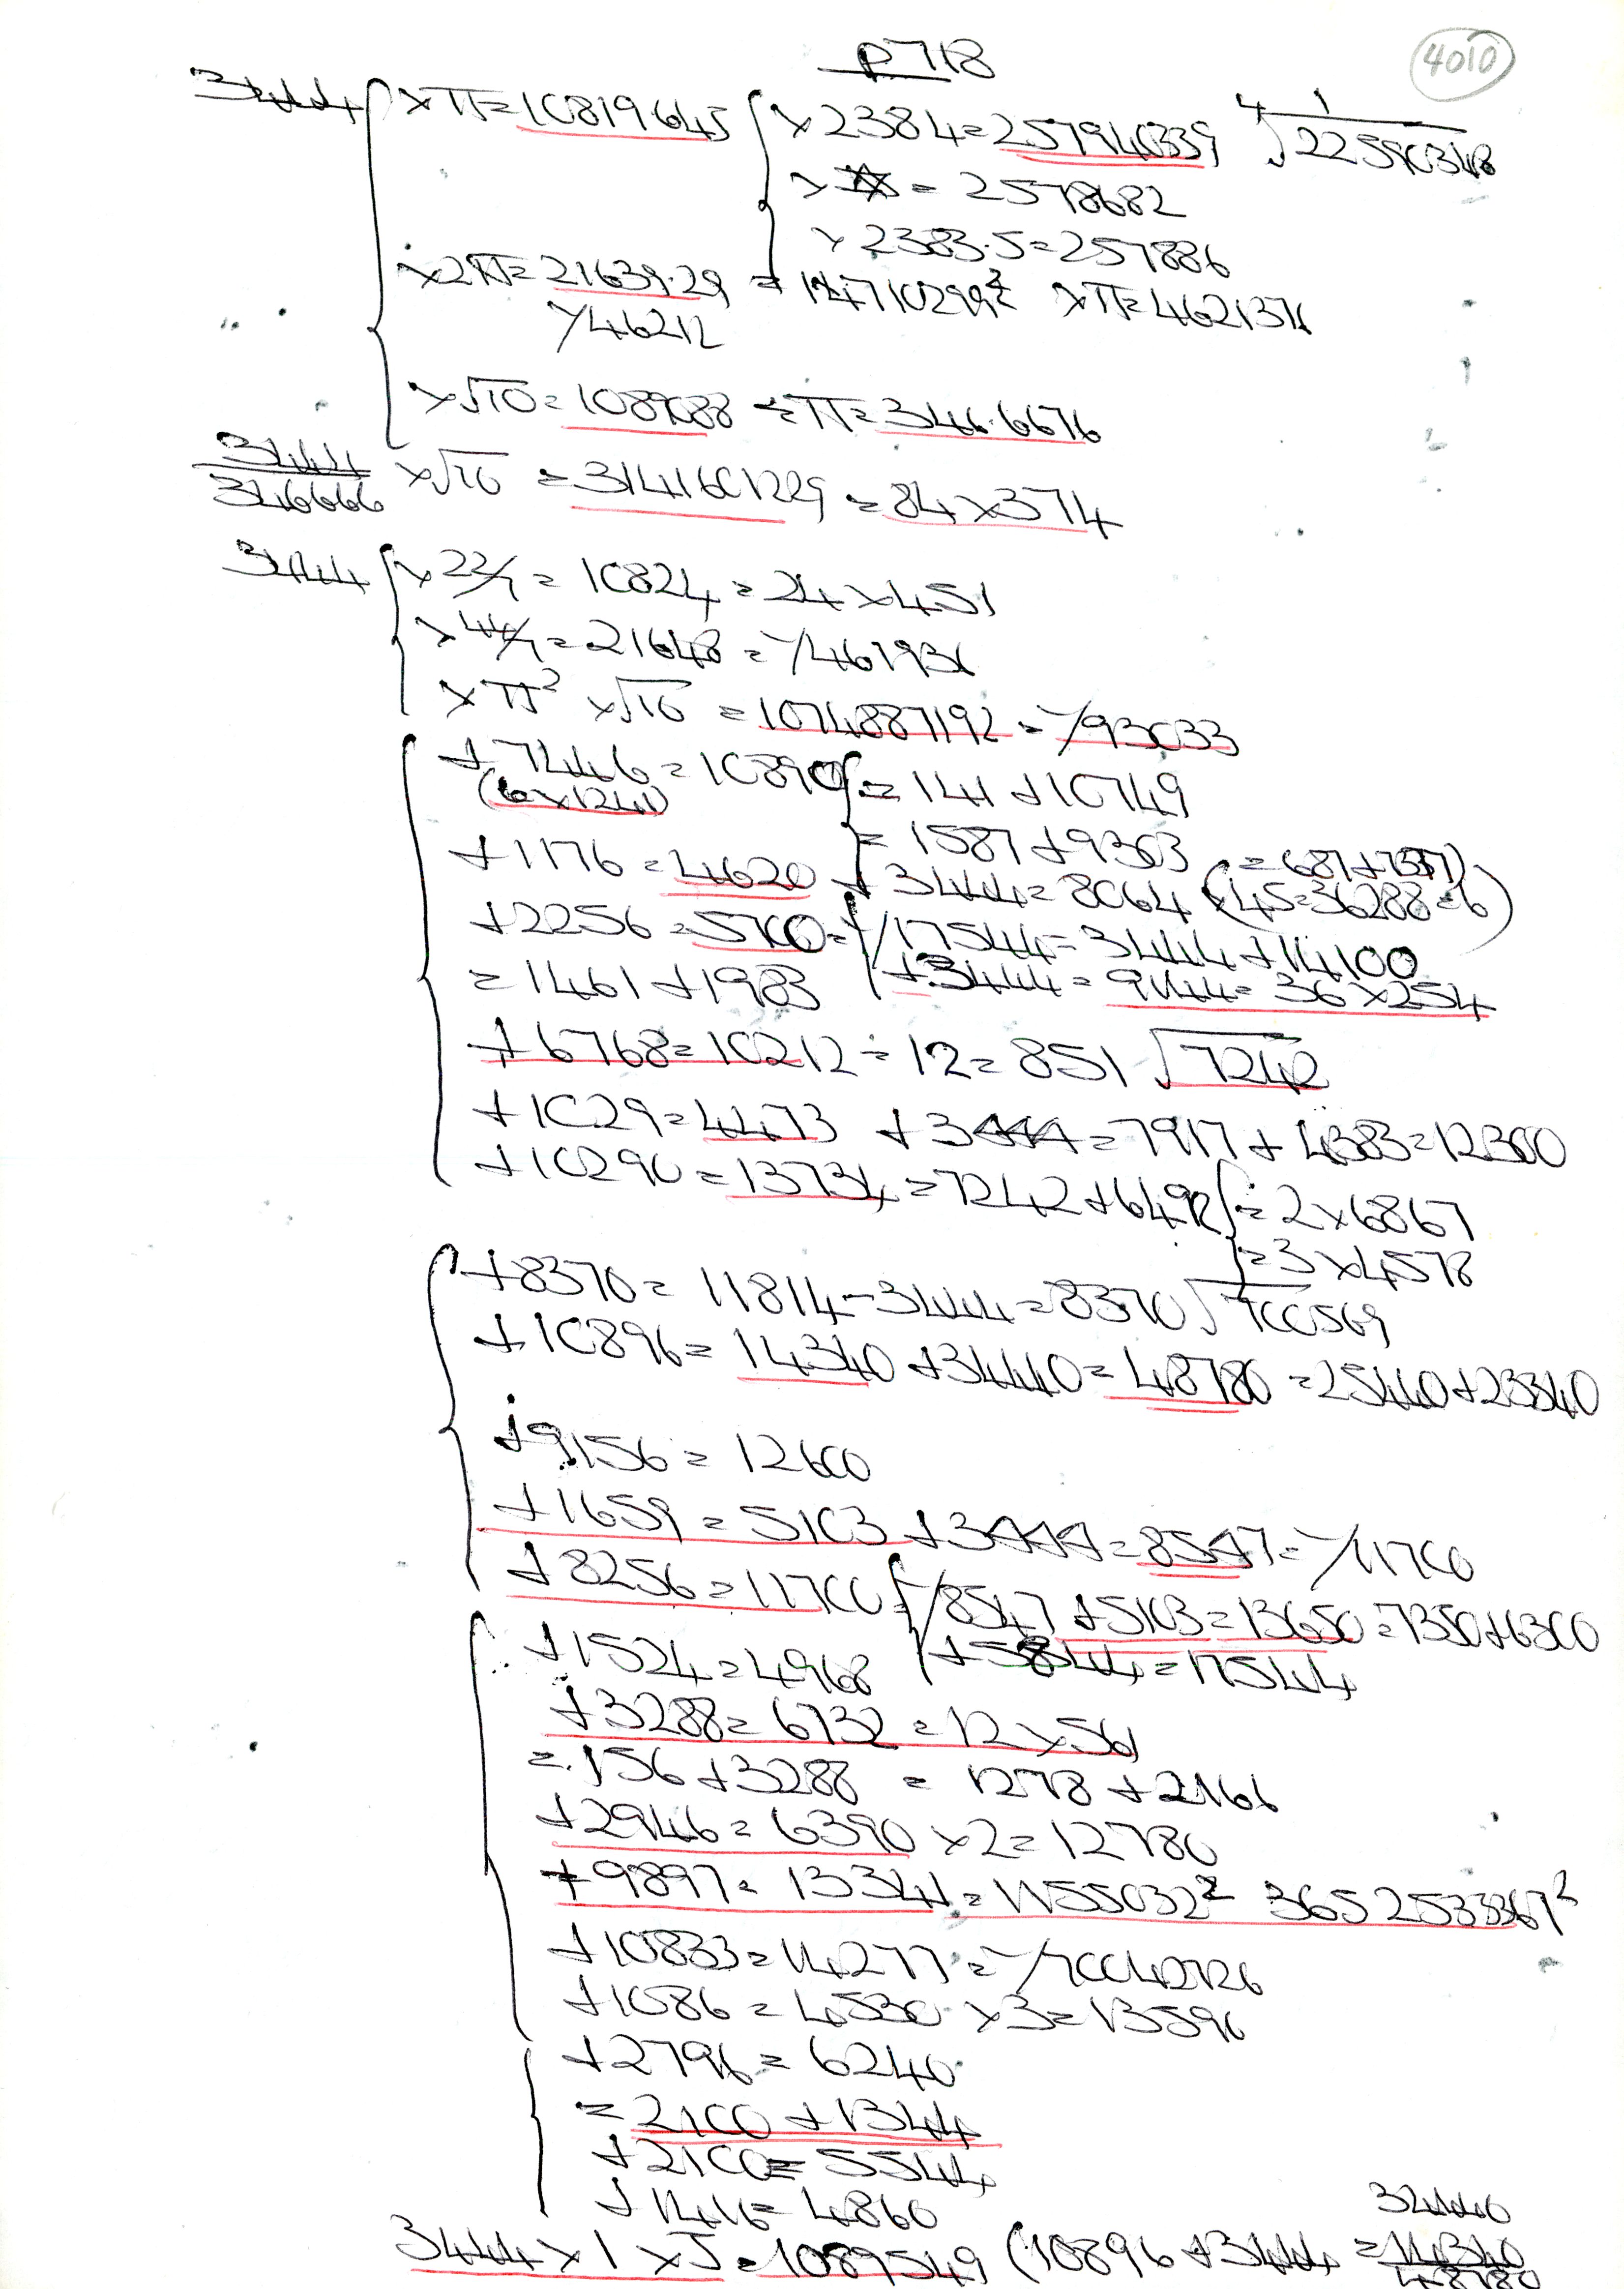 P718
4010
3444 { ×π=10819645 { ×2384=257940339 ⁴√1/22590348
= 2578682
×2383.5=257886
×2π=21639.29 = 14710299² ×π=4621371
/46212
×√10=1089088 ÷π=346.6676
3444/346666 ×√10 =3141601229=84×374
3444 { ×22/7=10824=24×451
×44/7=21648=/461931
×π²×√10=1074887192=/93033
+7446=10890 {=141+10749
(6×1241)
=1587+9303
+1176=4620 +3444=8064 (×45=36288=6)
+2256=5700={/17544=3444+14100
=1461+1983 +3444=9144=36×254
+6768=10212÷12=851 √7242
+1029=4473 +3444=7917+4383=12300
+10290=13734=7242+6492 {=2×6867
=3×4578
+8370=11814-3444=8370 √700569
+10896=14340+34440=48780=25440+23340
+9156=12600
+1659=5103+3444=8547=/11700
+8256=11700={/8547+5103=13650=7350+6300
+1524=4968 +5844=17544
+3288=6732=12×561
=156+3288 = 1278+2166
+2946=6390×2=12780
+9897=13341=1155032² 3652533367³
+10833=14277=/70042726
+1086=4530×3=13590
+2796=6240
=2100+1344
+2100=5544
+1416=4860
3444×1×√=1089549 (10896+3444=14340
34440
48780